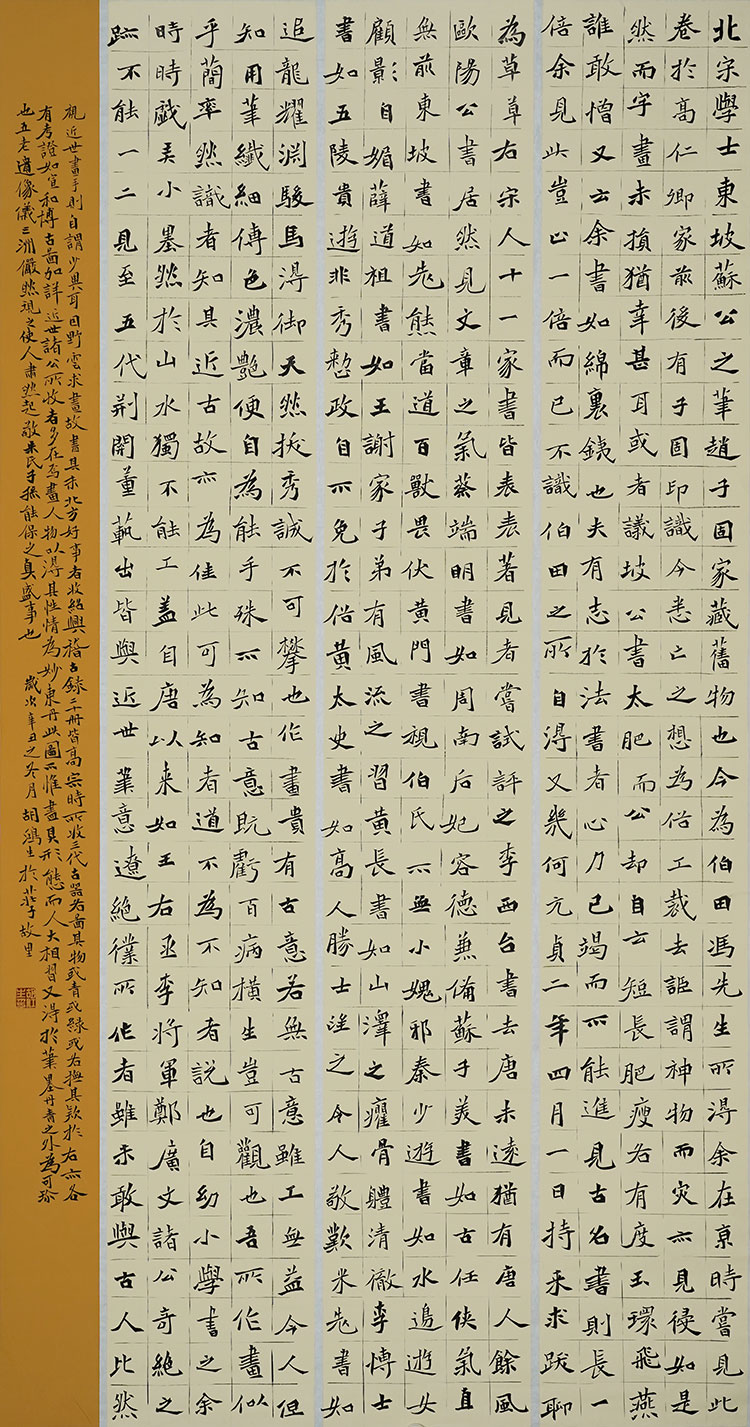 北宋學士東坡蘇公之筆趙子固家藏舊物也今為伯田馮先生所淂余在京時嘗見此
卷於高仁卿家前後有子固印識今悉亡之想為俗工裁去詎謂神物而灾亦見祲如是
然而字畫未損猶幸甚耳或者議坡公書太肥而公却自云短長肥瘦各有度玉環飛燕
誰敢憎又云余書如綿裏銕也夫有志於法書者心力已竭而不能進見古名書則長一
倍余見此豈止一倍而已不識伯田之所自淂又幾何元貞二年四月一日持来求跋聊
為草草右宋人十一家書皆表表著見者嘗試評之李西台書去唐未遠猶有唐人餘風
歐陽公書居然見文章之氣蔡端明書如周南后妃容德兼備蘇子美書如古任俠氣直
無前東坡書如老熊當道百獸畏伏黄門書視伯氏不無小媿邪秦少遊書如水邊遊女
顧影自媚薛道祖書如王謝家子弟有風流之習黄長書如山澤之癯骨體清徹李博士
書如五陵貴遊非秀整政自不免於俗黄太史書如高人勝士望之令人敬歎米老書如
追龍耀淵駿馬淂御天然拔秀誠不可攀也作畫貴有古意若無古意雖工無益今人但
知用筆纖細傅色濃艷便自為能手殊不知古意既虧百病橫生豈可觀也吾所作畫似
乎蕳率然識者知其近古故亦為佳此可為知者道不為不知者說也自幼小學書之余
時時戲弄小墨然於山水獨不能工蓋自唐以来如王右丞李將軍鄭廣文諸公奇絕之
跡不能一二見至五代荊關董範出皆與近世筆意遼絕僕所作者雖未敢與古人比然
視近世畫手則自謂少異耳因野雲求畫故書其末北方好事者收紹興稽古錄二十冊皆高宗時所收三代古器各圖其物或青或綠或右撫其欵於右亦各
有考證如宣和博古圖加詳近世諸公所收者多在焉畫人物以淂其性情為妙東丹此圖不惟盡其形態而人犬相習又淂於筆墨丹青之外為可珍
也五老遺像儀三洲儼然視之使人肅然起敬朱氏子孫能保之真盛事也 歲次辛丑之冬月胡鴻生於莊子故里